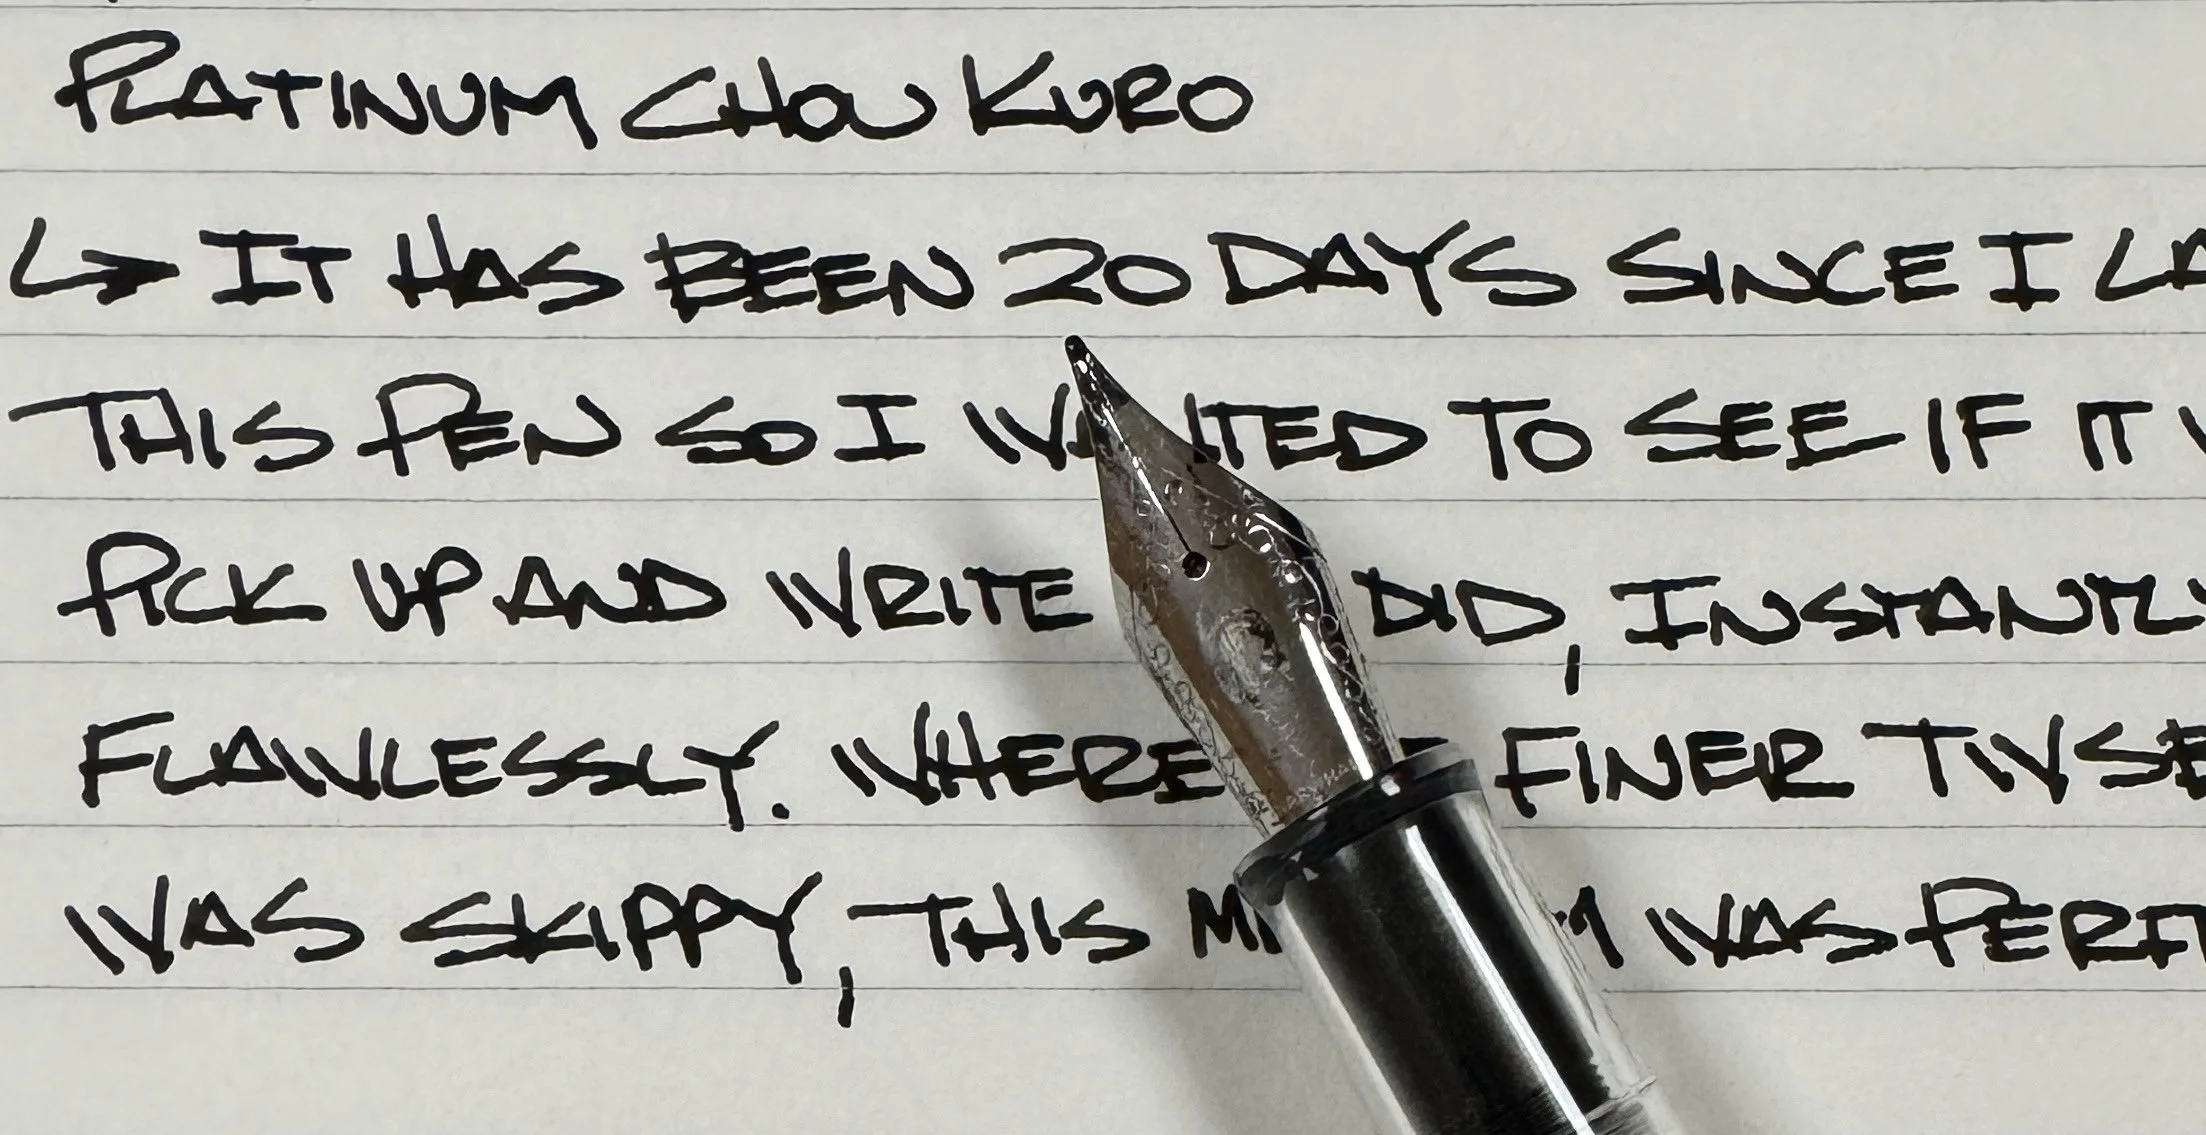 PLATINUM CHOU KURO
↳ IT HAS BEEN 20 DAYS SINCE I
THIS PEN SO I WANTED TO SEE IF IT
PICK UP AND WRITE DID, INSTANTLY
FLAWLESSLY. WHERE FINER TWSB
WAS SKIPPY, THIS WAS